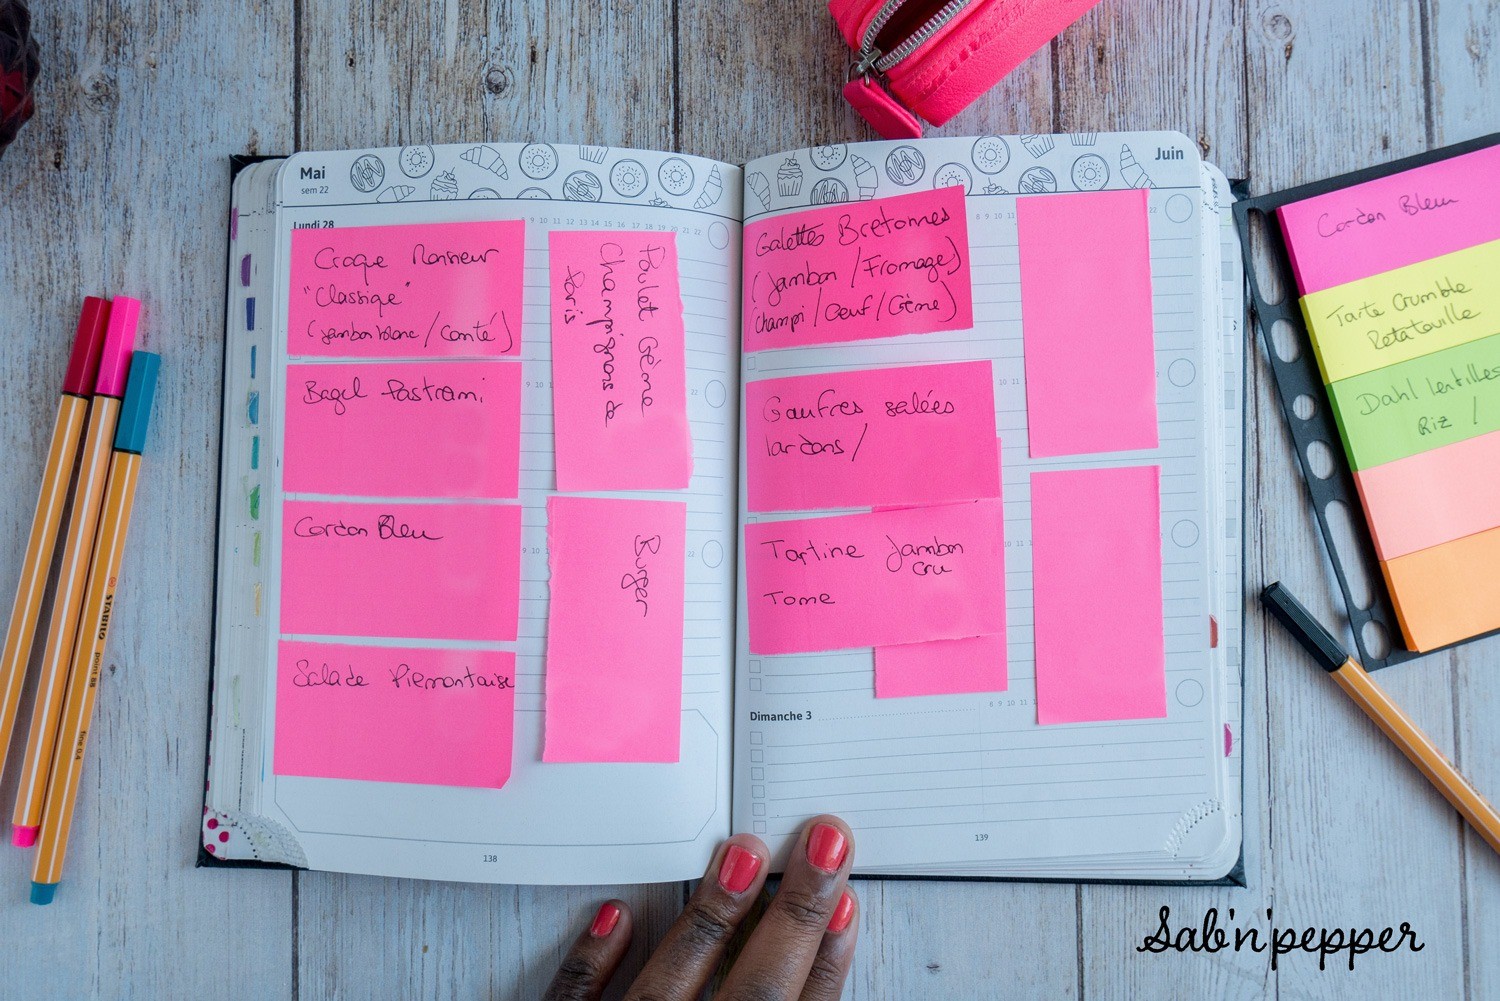 Mai
sem 22
Lundi 28
Croque Monsieur
"Classique"
(jambon blanc / Comté)
Bagel Pastrami
Cordon Bleu
Salade Piémontaise
Poulet Crème
Champignons de
Paris
Burger
138
Juin
Galettes Bretonnes
(jambon / Fromage)
(champi / Oeuf / Crème)
Gaufres salées
lardons /
Tartine Jambon
cru
Tome
Dimanche 3
139
Cordon Bleu
Tarte Crumble
Ratatouille
Dahl lentilles
Riz /
STABILO
point 88
fine 0,4
Sab'n'pepper